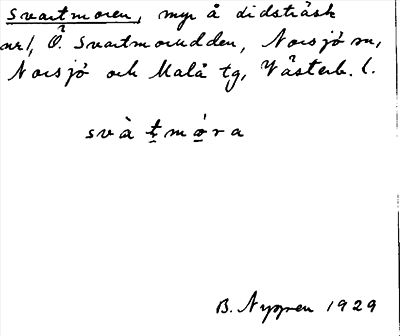 Svartmoren, myr å didsträsk
nr 1, Ö. Svartmorudden, Norsjö sn,
Norsjö och Malå tg, Västerb. l.
svàt̠mǿ̠ra
B. Nygren 1929